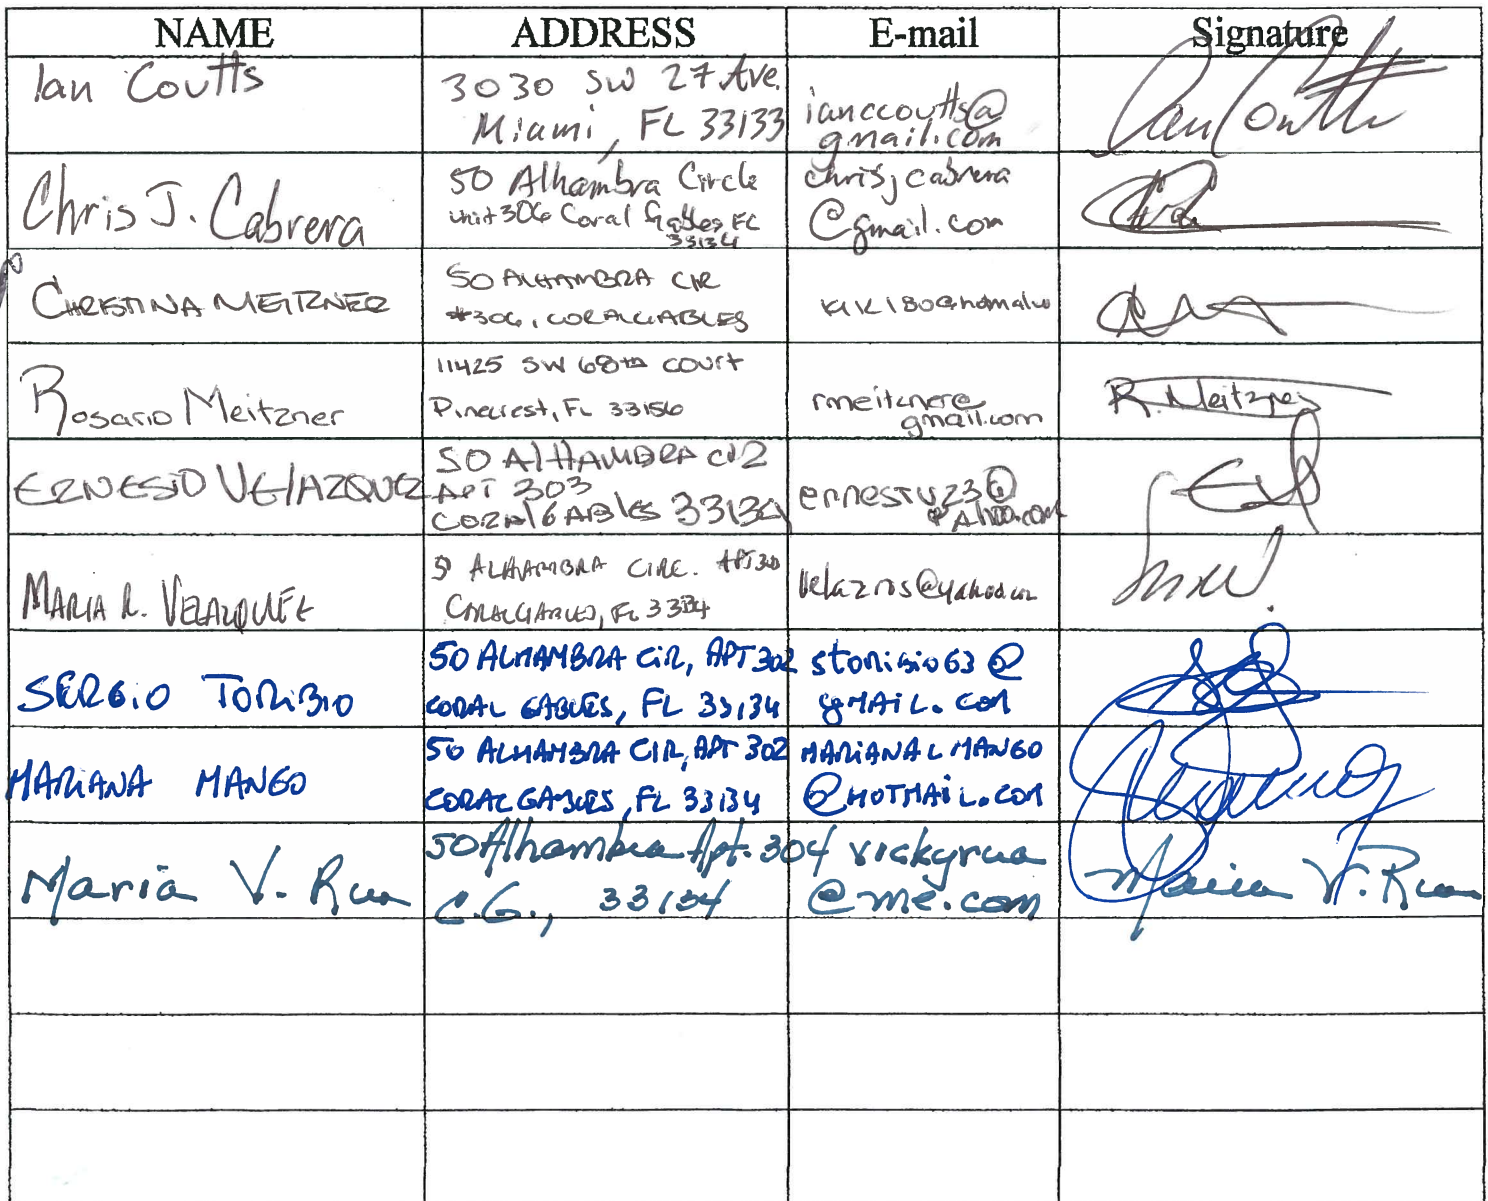 NAME ADDRESS E-mail Signature
Ian Coutts
3030 SW 27 Ave.
Miami, FL 33133
ianccoutts@
gmail.com
Ian Coutts
Chris J. Cabrera
50 Alhambra Circle
unit 306 Coral Gables, FL
33134
chrisjcabrera
@gmail.com
CHRISTINA MEITZNER
50 ALHAMBRA CIR
#306, CORAL GABLES
Rosario Meitzner
11425 SW 68th court
Pinecrest, FL 33156
rmeitzner@
gmail.com
R. Meitzner
ERNESTO VELAZQUEZ
50 AlHAMBRA CIR
APT 303
CORAl GABlES 33134
@yAhoo.com
MARIA R. VELAZQUEZ
ALHAMBRA CIRC.
CORAL GABLES, FL 33134
velazros@yahoo.com
SERGiO TORiBiO
50 ALHAMBRA CiR, APT 302
CORAL GABLES, FL 33134
storibio63@
gMAiL.COM
MARiANA MANGO
50 ALHAMBRA CIR, APT 302
CORAL GABLES, FL 33134
MARiANALMANGO
@HOTMAiL.COM
Maria V. Rua
50 Alhambra Apt. 304
C.G., 33134
vickyrua
@me.com
Maria V. Rua